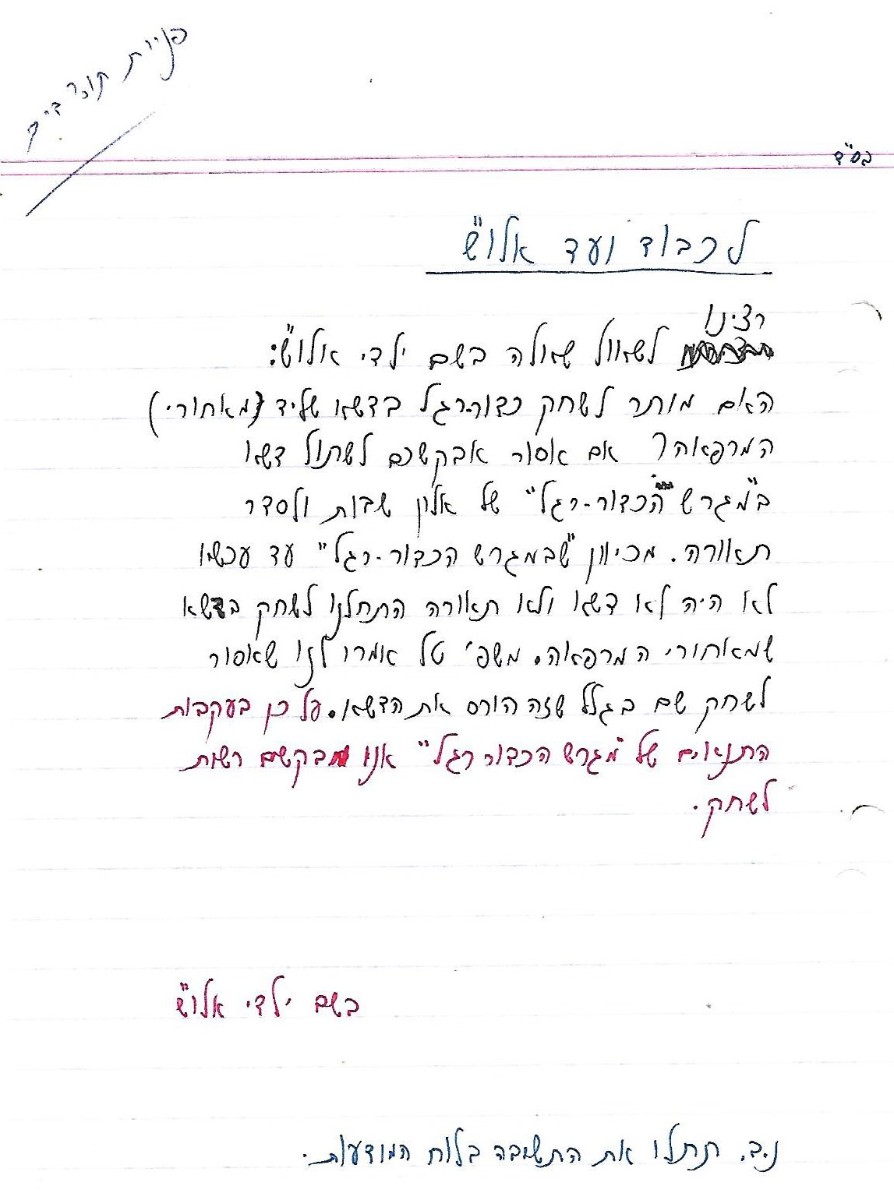 פניית תושבים
בס"ד
לכבוד ועד אלו"ש
רצינו
לשאול שאלה בשם ילדי אלו"ש:
האם מותר לשחק כדור-רגל בדשא שליד (מאחורי)
המרפאה? אם אסור אבקשכם לשתול דשא
ב"מגרש הכדור-רגל" של אלון שבות ולסדר
תאורה. מכיוון "שבמגרש הכדור-רגל" עד עכשו
לא היה לא דשא ולא תאורה התחלנו לשחק בדשא
שמאחורי המרפאה. משפ' טל אמרו לנו שאסור
לשחק שם בגלל שזה הורס את הדשא. על כן בעקבות
התנאים של "מגרש הכדור רגל" אנו מבקשים רשות
לשחק.
בשם ילדי אלו"ש
נ.ב. תתלו את התשובה בלוח המודעות.